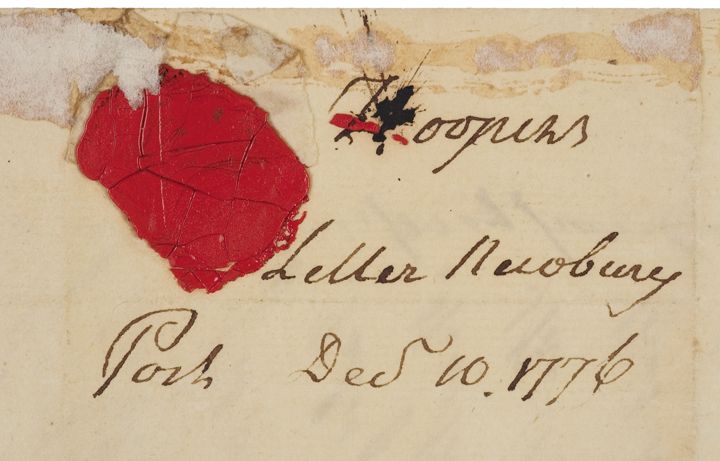 Hoopers
Letter Newbury
Port Decr 10. 1776